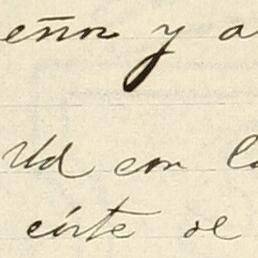 eñor y a
Ud con la
cirte se